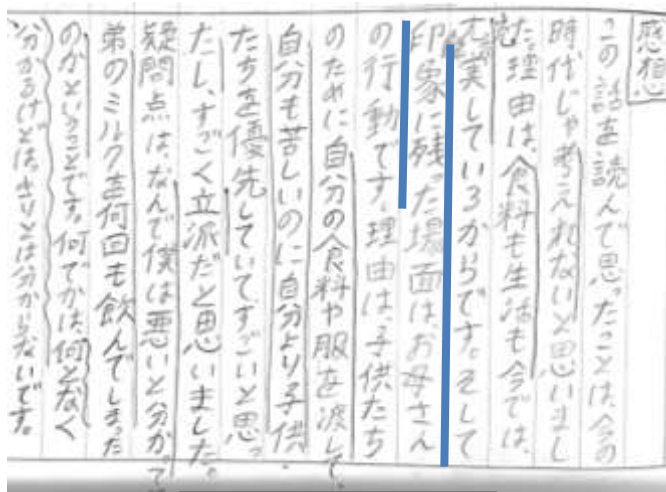 感想
この話を読んで思ったことは、今の
時代じゃ考えれないと思いまし
た。理由は、食料も生活も今では、
充実しているからです。そして
印象に残った場面は、お母さん
の行動です。理由は、子供たち
のために自分の食料や服を渡して、
自分も苦しいのに自分より子供
たちを優先していて、すごいと思っ
たし、すごく立派だと思いました。
疑問点は、なんで僕は悪いと分かって
弟のミルクを何回も飲んでしまった
のかということです。何でかは、何となく
分かるけどはっきりとは分からないです。